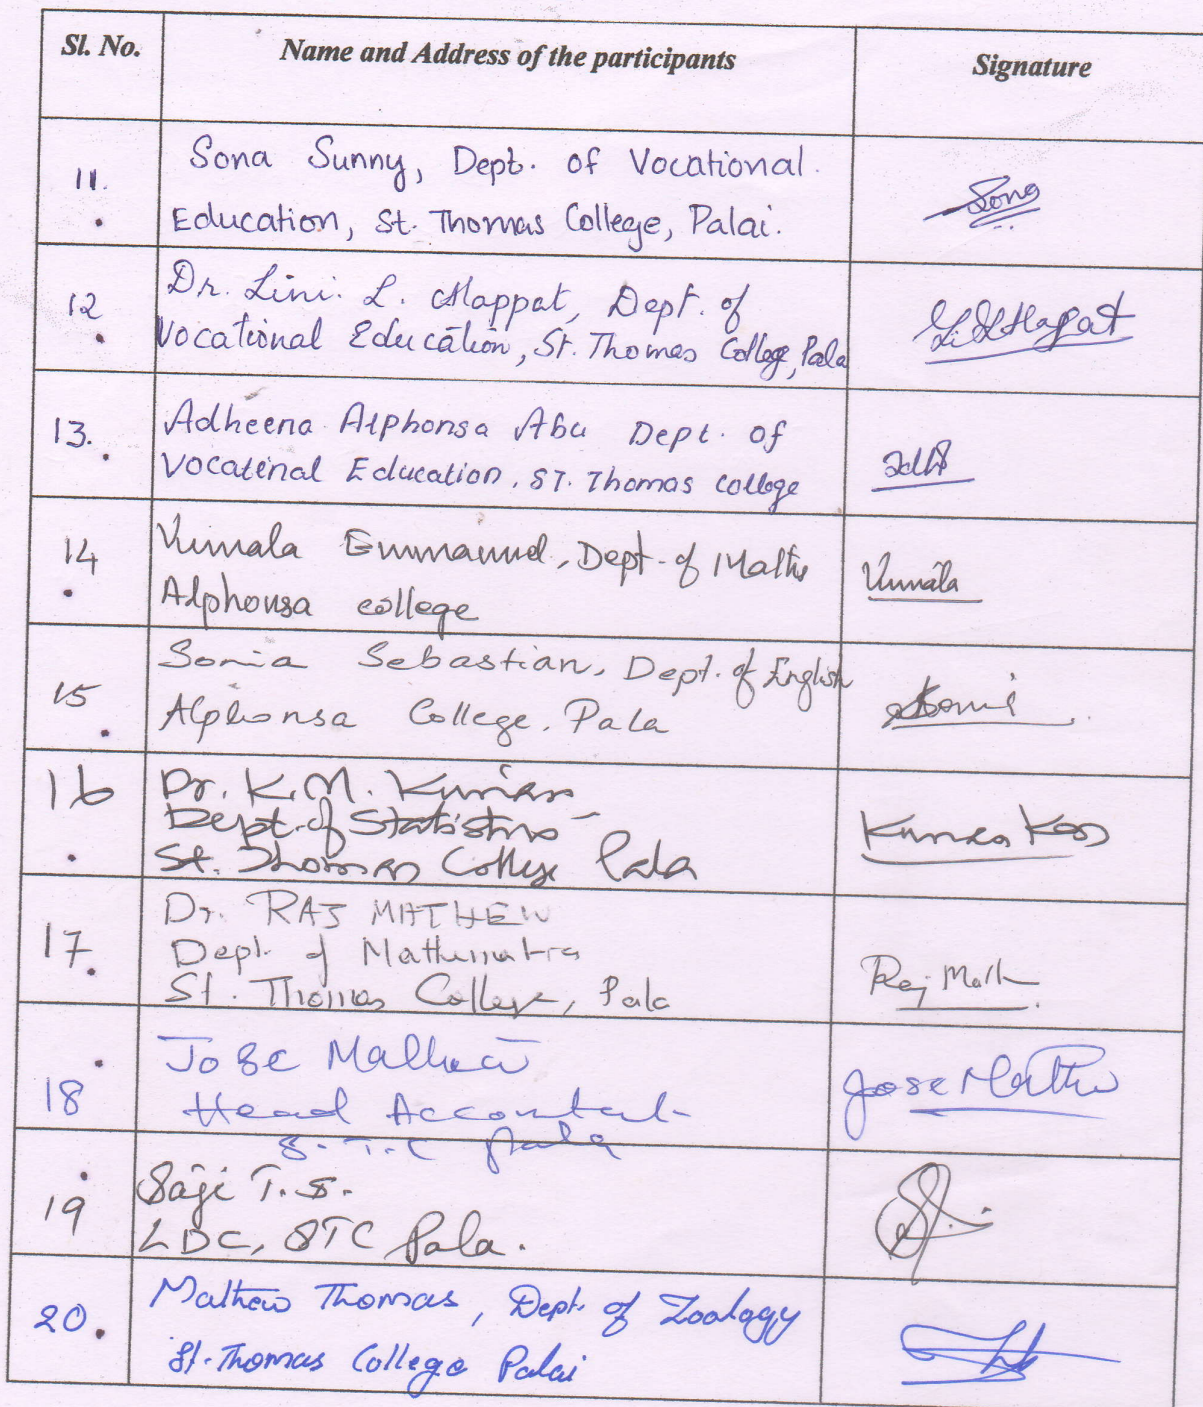 Sl. No. Name and Address of the participants Signature
11. Sona Sunny, Dept. of Vocational
Education, St. Thomas College, Palai. Sona
12 Dr. Lini. L. Alappat, Dept. of
Vocational Education, St. Thomas College, Pala
13. Adheena Alphonsa Abu Dept. of
Vocatinal Education, ST. Thomas college
14 Vimala Emmanuel, Dept. of Maths Vimala
Alphonsa college
15 Sonia Sebastian, Dept. of English
Alphonsa College, Pala
16 Dr. K.M. Kurian
Dept. of Statistics
St. Thomas College Pala
17. Dr. RAJ MATHEW
Dept. of Mathematics
St. Thomas College, Pala
18 Jose Mathew Jose Mathew
Head Accountant
S.T.C Pala
19 Saji T.S.
LDC, STC Pala.
20. Mathew Thomas, Dept. of Zoology
St. Thomas College Palai